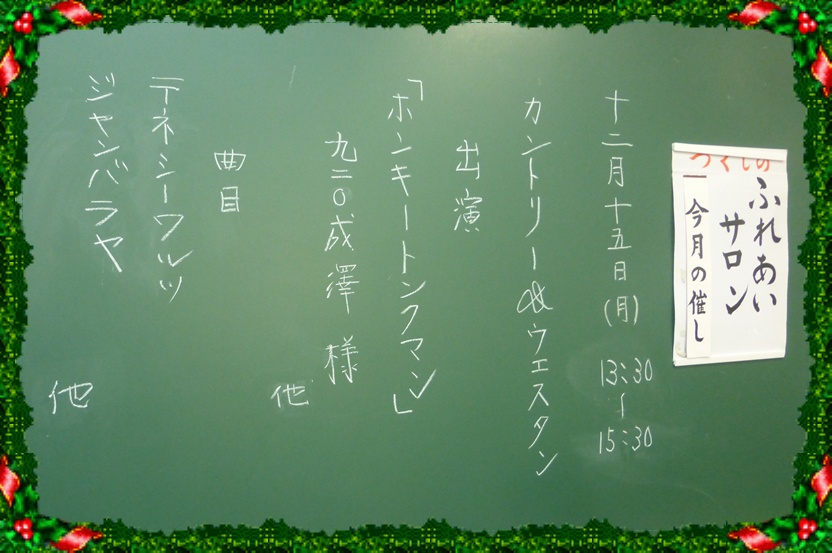 つくしの
ふれあい
サロン
今月の催し
十二月十五日(月) 13:30〜15:30
カントリー&ウエスタン
出演
「ホンキートンクマン」
九二〇成澤 様
他
曲目
テネシーワルツ
ジャンバラヤ
他